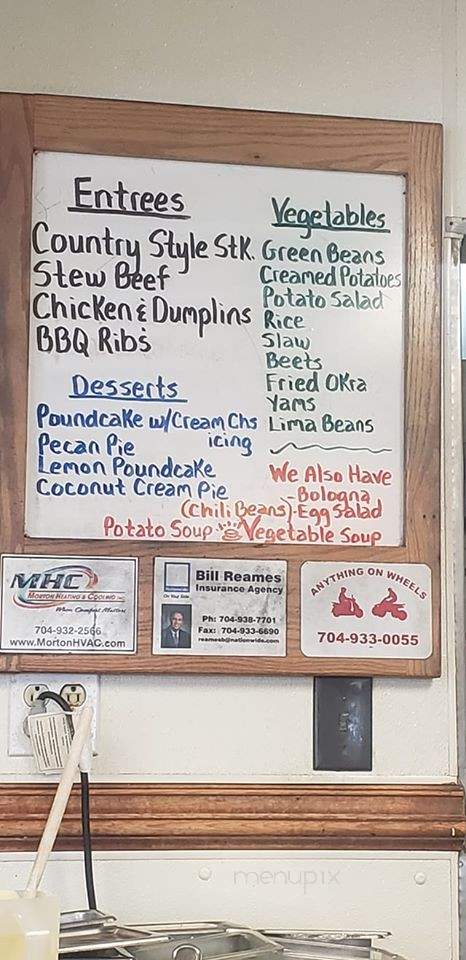 Entrees
Country Style Stk.
Stew Beef
Chicken & Dumplins
BBQ Ribs
Desserts
Poundcake w/Cream Chs
icing
Pecan Pie
Lemon Poundcake
Coconut Cream Pie
Vegetables
Green Beans
Creamed Potatoes
Potato Salad
Rice
Slaw
Beets
Fried Okra
Yams
Lima Beans
We Also Have
- Bologna
(Chili Beans) - Egg Salad
Potato Soup Vegetable Soup
MHC
MORTON HEATING & COOLING INC
When Comfort Matters
704-932-2566
www.MortonHVAC.com
Bill Reames
Insurance Agency
On Your Side
Ph: 704-938-7701
Fax: 704-933-6690
reamesb@nationwide.com
ANYTHING ON WHEELS
704-933-0055
menupix